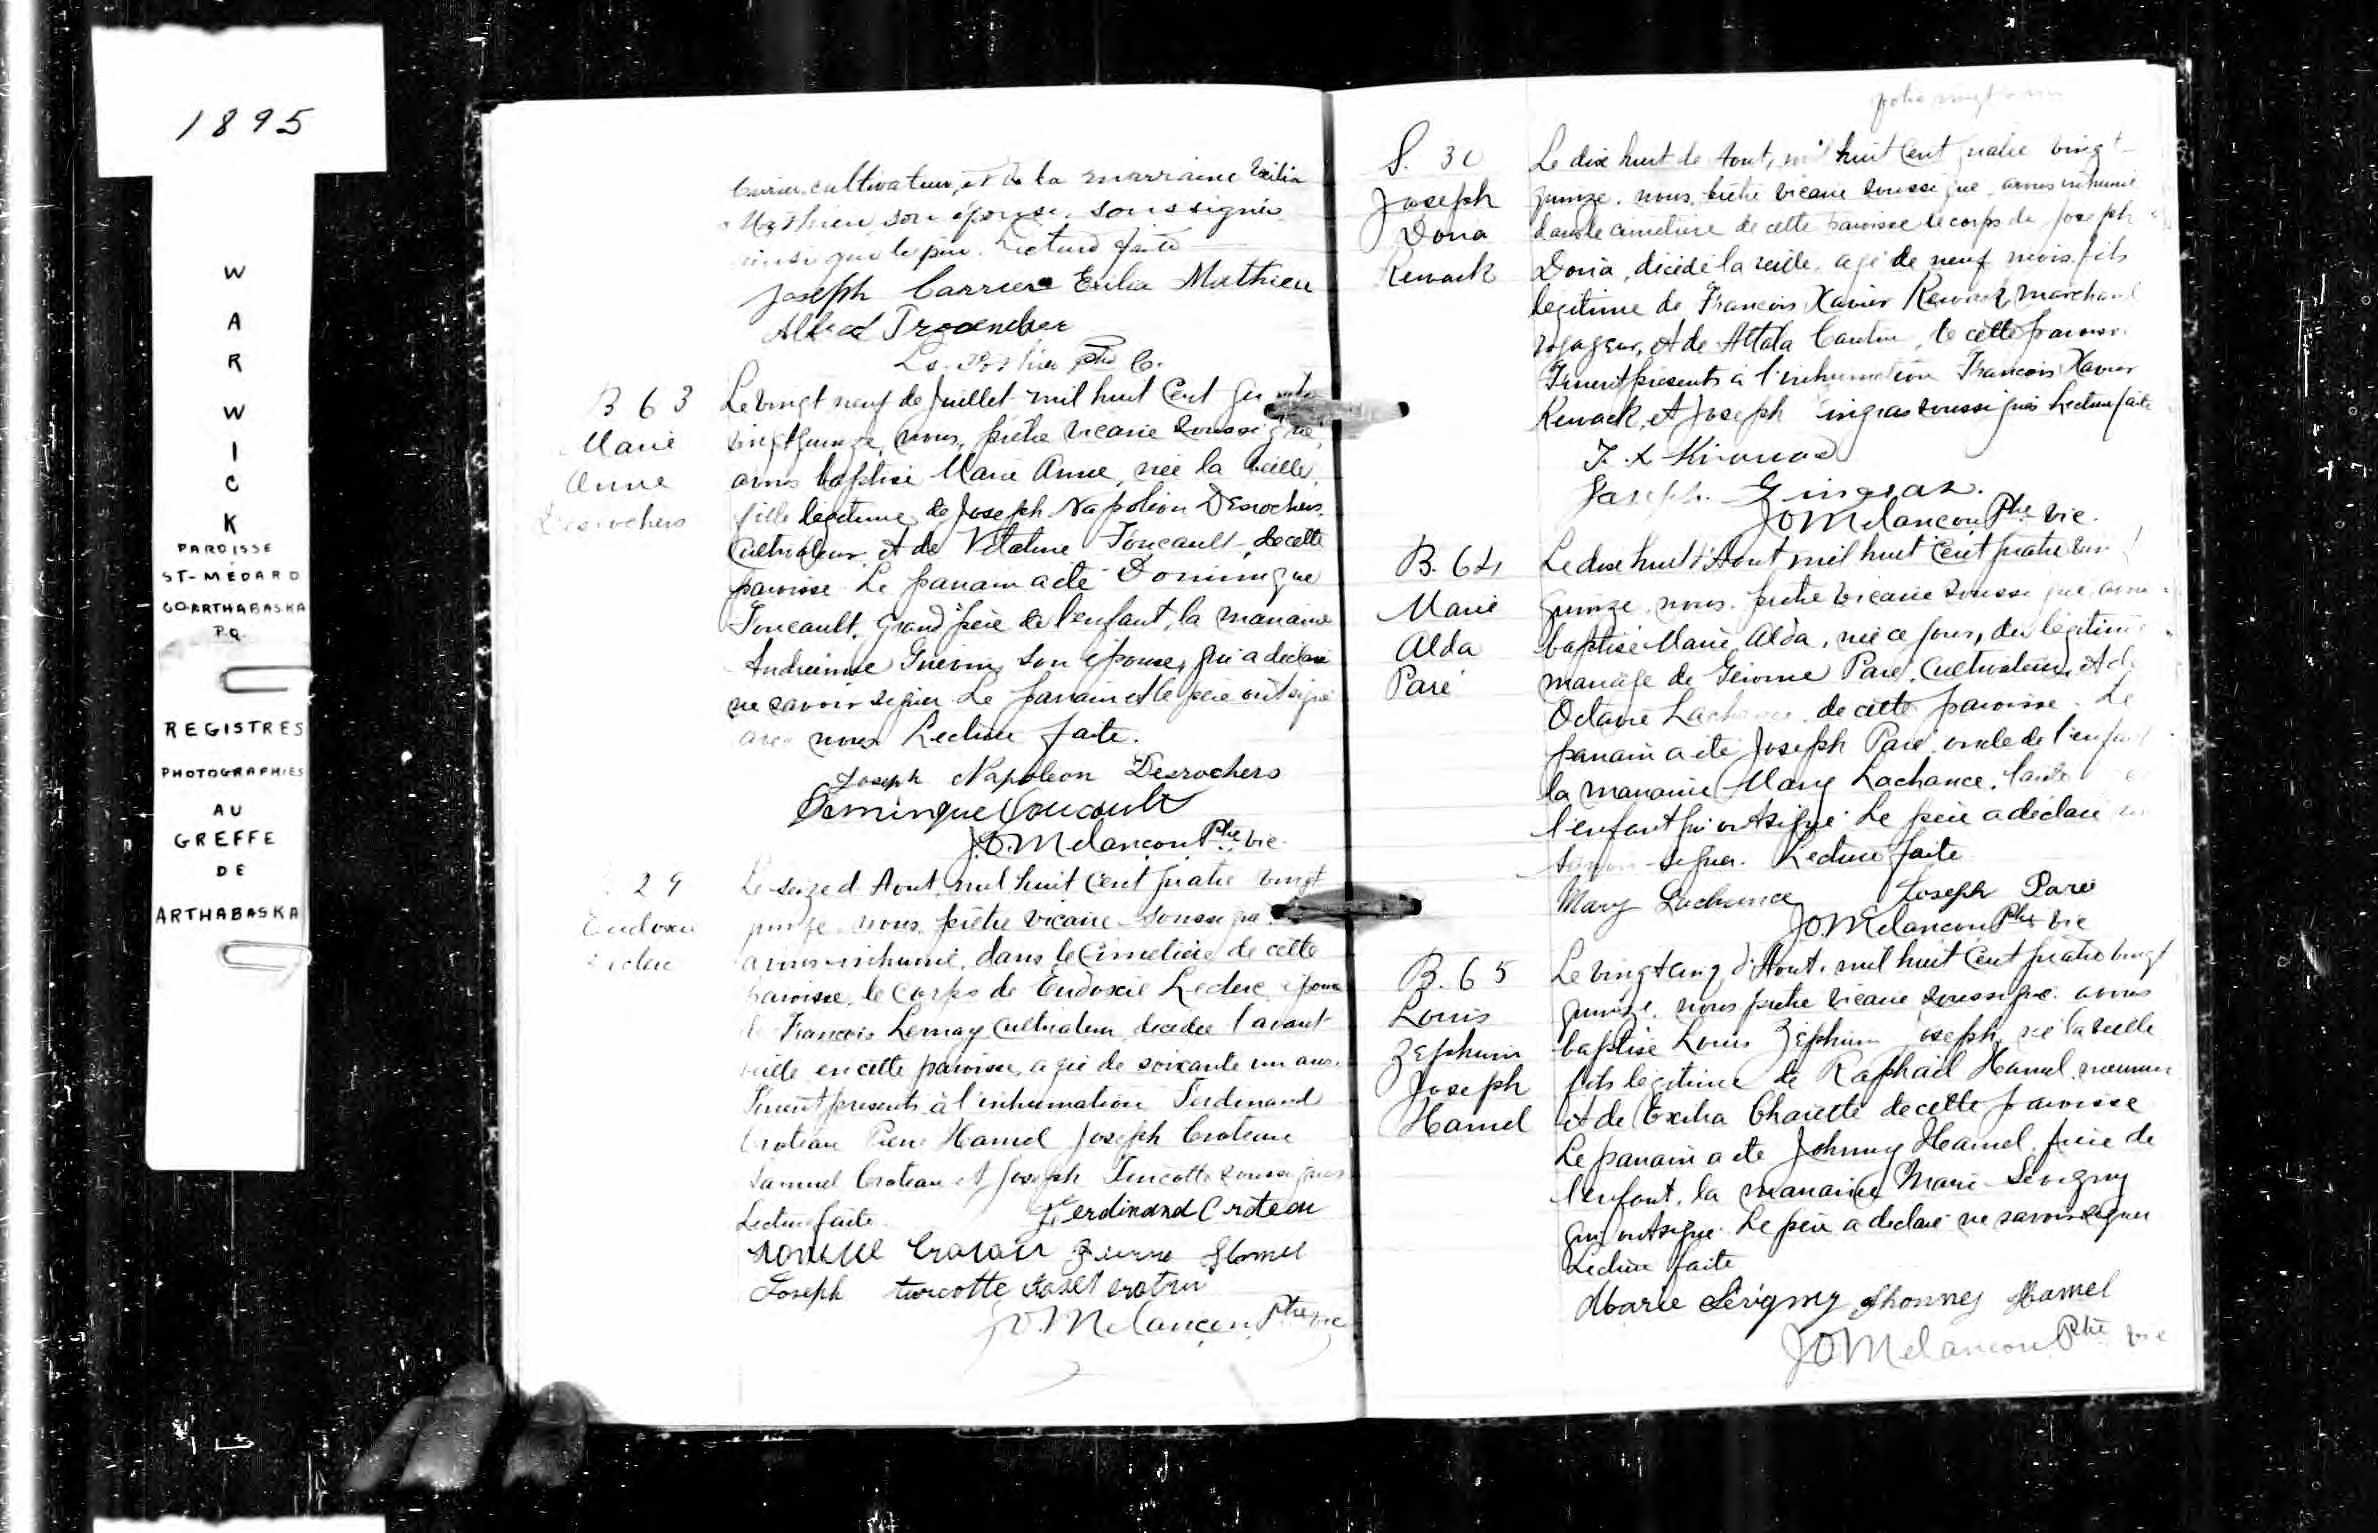 1895
W
A
R
W
I
C
K
PAROISSE
ST-MÉDARD
CO ARTHABASKA
P.Q.
REGISTRES
PHOTOGRAPHIES
AU
GREFFE
DE
ARTHABASKA
cultivateur, et de la marraine Exilia
Mathieu, son épouse, soussignés
ainsi que le père. Lecture faite
Joseph Carrier Exilia Mathieu
Ptre
B 63
Marie
Anne
Desrochers
Le vingt neuf de Juillet mil huit Cent quatre
vingt quinze, nous, prêtre vicaire soussigné,
avons baptisé Marie Anne, née la veille,
fille légitime de Joseph Napoléon Desrochers
Cultivateur et de Vitaline Foucault, de cette
paroisse. Le parrain a été Dominique
Foucault, Grand père de l'enfant, la marraine
son épouse, qui a déclaré
ne savoir signer. Le parrain et le père ont signé
avec nous. Lecture faite.
Joseph Napoleon Desrochers
Dominique Foucault
J.O. Melançon Ptre vic.
29
Eudoxie
Leclerc
Le seize d'Aout, mil huit Cent quatre vingt
quinze, nous, prêtre vicaire soussigné
avons inhumé, dans le Cimetière de cette
paroisse, le Corps de Eudoxie Leclerc, épouse
de Francois Lemay Cultivateur, décédée l'avant
veille en cette paroisse, agée de soixante un ans.
Furent présents à l'inhumation Ferdinand
Croteau Pierre Hamel Joseph Croteau
Samuel Croteau et Joseph Turcotte soussignés
Lecture faite. Ferdinand Croteau
Pierre Hamel
Joseph turcotte
J.O. Melançon Ptre vic
S. 30
Joseph
Dona
Kirouack
Le dix huit de Aout, mil huit Cent quatre vingt
quinze, nous, prêtre vicaire soussigné, avons inhumé
dans le cimetière de cette paroisse le corps de Joseph
décédé la veille, agé de neuf mois, fils
légitime de Francois Xavier marchand
voyageur, et de Attala Cantin, de cette paroisse.
Furent présents à l'inhumation Francois Xavier
et Joseph Gingras soussignés Lecture faite
F. X Kirouac
Joseph. Gingras.
JO Melancon Ptre vic.
B. 64
Marie
Alda
Paré
Le dix huit d'Aout mil huit Cent quatre vingt
quinze, nous, prêtre vicaire soussigné, avons
baptisé Marie Alda, née ce jour, du légitime
mariage de Gérome Paré, Cultivateur, et de
Octavie Lachance, de cette paroisse. Le
parrain a été Joseph Paré, oncle de l'enfant
la marraine Mary Lachance, tante de
l'enfant qui ont signé. Le père a déclaré ne
savoir signer. Lecture faite
Mary Lachance Joseph Paré
JO. Melancon Ptre vic
B. 65
Louis
Zéphirin
Joseph
Hamel
Le vingt cinq d'Aout, mil huit Cent quatre vingt
quinze, nous prêtre vicaire soussigné, avons
baptisé Louis Zéphirin Joseph, né la veille
fils légitime de Raphaël Hamel,
et de Exilia de cette paroisse
Le parrain a été Johnny Hamel, frère de
l'enfant, la marraine Marie Sévigny
qui ont signé. Le père a déclaré ne savoir signer
Lecture faite
Marie Sévigny Jhonney Hamel
JO Melancon Ptre vic